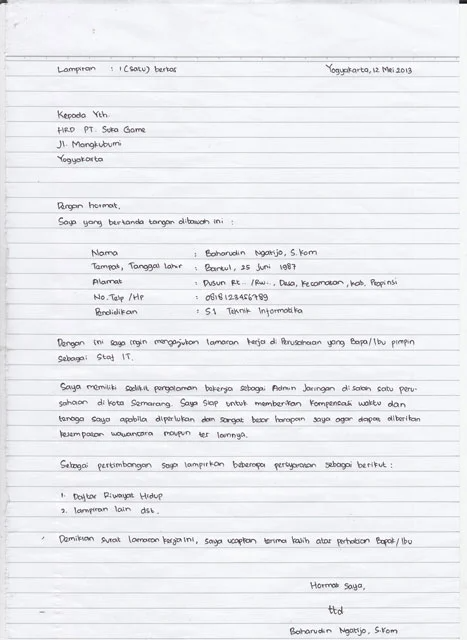 Lampiran : 1 (satu) berkas Yogyakarta, 12 Mei 2013
Kepada Yth.
HRD PT. Suka Game
Jl. Mangkubumi
Yogyakarta
Dengan hormat,
Saya yang bertanda tangan dibawah ini :
Nama : Baharudin Ngatijo, S.Kom
Tempat, Tanggal Lahir : Bantul, 25 Juni 1987
Alamat : Dusun Rt.. /Rw.., Desa, Kecamatan, Kab, Propinsi
No. Telp /HP : 0818123456789
Pendidikan : S1 Teknik Informatika
Dengan ini saya ingin mengajukan lamaran kerja di Perusahaan yang Bapa/Ibu pimpin
sebagai Staf IT.
Saya memiliki sedikit pengalaman bekerja sebagai Admin Jaringan di salah satu peru-
sahaan di Kota Semarang. Saya Siap untuk memberikan kompensasi waktu dan
tenaga saya apabila diperlukan dan sangat besar harapan saya agar dapat diberikan
kesempatan wawancara maupun tes lainnya.
Sebagai pertimbangan saya lampirkan beberapa persyaratan sebagai berikut :
1. Daftar Riwayat Hidup
2. lampiran lain dst.
Demikian Surat lamaran kerja ini, saya ucapkan terima kasih atas perhatian Bapak/Ibu
Hormat Saya,
ttd
Baharudin Ngatijo, S.Kom